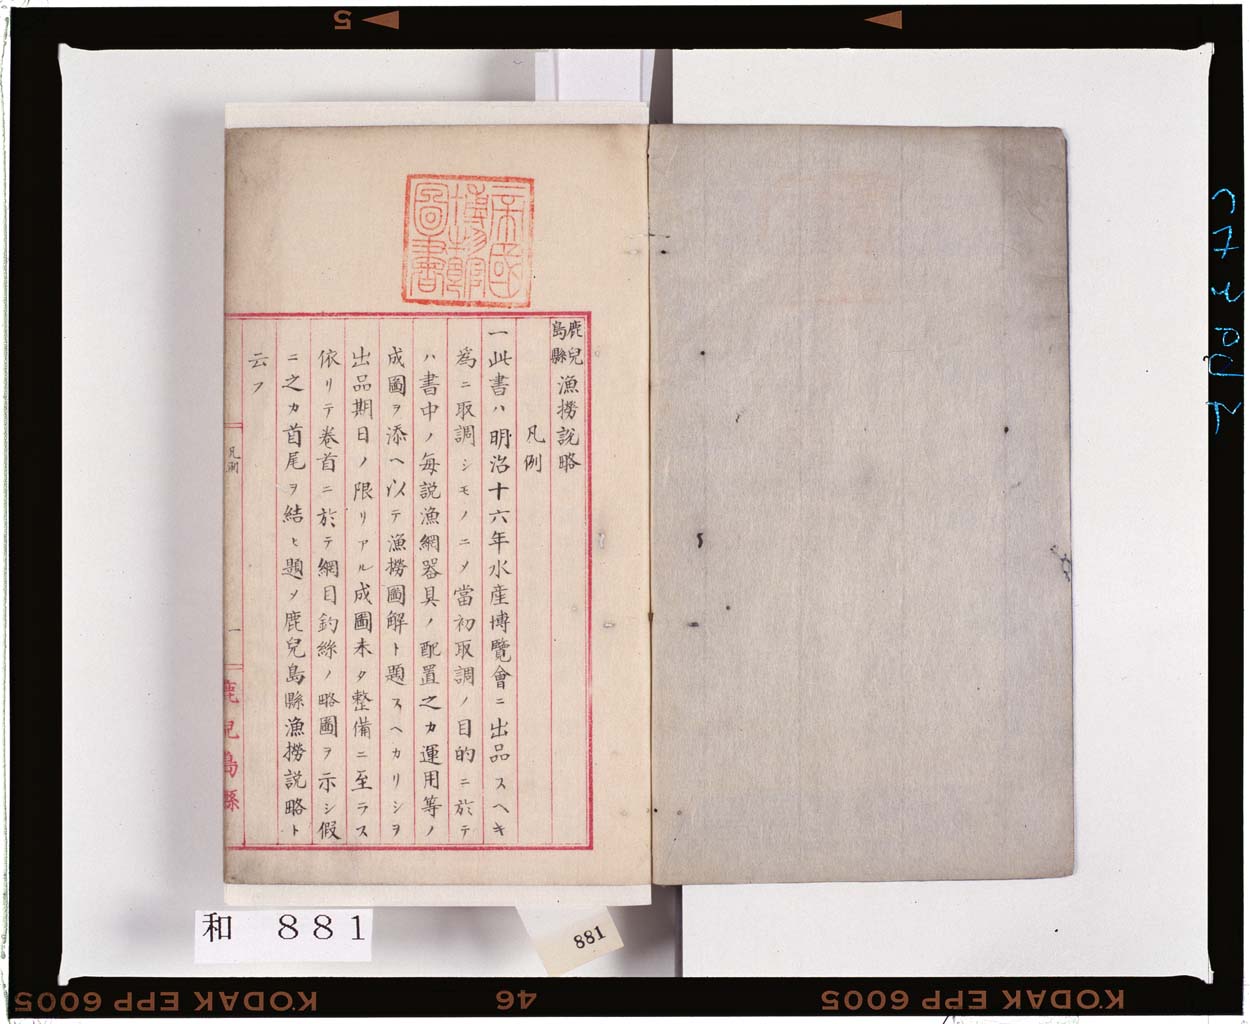 鹿兒島縣漁撈說略
凡例
一此書ハ明治十六年水産博覽會ニ出品スヘキ
爲ニ取調シモノニメ當初取調ノ目的ニ於テ
ハ書中ノ每說漁網器具ノ配置之カ運用等ノ
成圖ヲ添ヘ以テ漁撈圖解ト題スヘカリシヲ
出品期日ノ限リアル成圖未タ整備ニ至ラス
依リテ卷首ニ於テ網目釣絲ノ略圖ヲ示シ假
ニ之カ首尾ヲ結ヒ題メ鹿兒島縣漁撈說略ト
云フ
凡例
一
鹿兒島縣
帝國
博物館
圖書
和 881
881
5
KODAK EPP 6005
46
KODAK EPP 6005